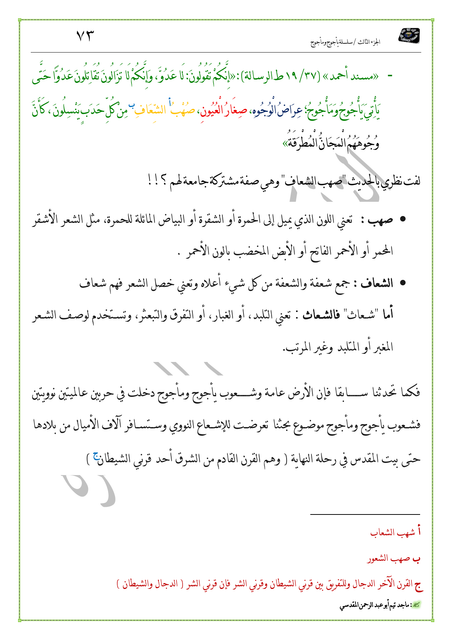 الجزء الثالث / سلسلة يأجوج ومأجوج
٧٣
- «مسند أحمد» (٣٧/ ١٩ ط الرسالة): «إِنَّكُمْ تَقُولُونَ: لَا عَدُوَّ، وَإِنَّكُمْ لَا تَزَالُونَ تُقَاتِلُونَ عَدُوًّا حَتَّى
يَأْتِيَ يَأْجُوجُ وَمَأْجُوجُ؛ عِرَاضُ الْوُجُوهِ، صِغَارُ الْعُيُونِ، صُهْبُ أ الشعَافِ ب مِنْ كُلِّ حَدَبٍ يَنْسِلُونَ، كَأَنَّ
وُجُوهَهُمُ الْمَجَانُّ الْمُطْرَقَةُ»
لفت نظري بالحديث "صهب الشعاف" وهي صفة مشتركة جامعة لهم ؟ ! !
• صهب : تعني اللون الذي يميل إلى الحمرة أو الشقرة أو البياض المائلة للحمرة، مثل الشعر الأشقر
المحمر أو الأحمر الفاتح أو الأبض المخضب بالون الأحمر .
• الشعاف : جمع شعفة والشعفة من كل شيء أعلاه وتعني خصل الشعر فهم شعاف
أما "شعاث" فالشعاث : تعني التلبد، أو الغبار، أو التفرق والتبعثر، وتستخدم لوصف الشعر
المغبر أو المتلبد وغير المرتب.
فكما تحدثنا سابقا فإن الأرض عامة وشعوب يأجوج ومأجوج دخلت في حربين عالميتين نوويتين
فشعوب يأجوج ومأجوج موضوع بحثنا تعرضت للإشعاع النووي وستسافر آلاف الأميال من بلادها
حتى بيت المقدس في رحلة النهاية ( وهم القرن القادم من الشرق أحد قرني الشيطان ج )
أ شهب الشعاب
ب صهب الشعور
ج القرن الآخر الدجال والتفريق بين قرني الشيطان وقرني الشر فإن قرني الشر ( الدجال والشيطان )
: ماجد تيم أبو عبد الرحمن المقدسي